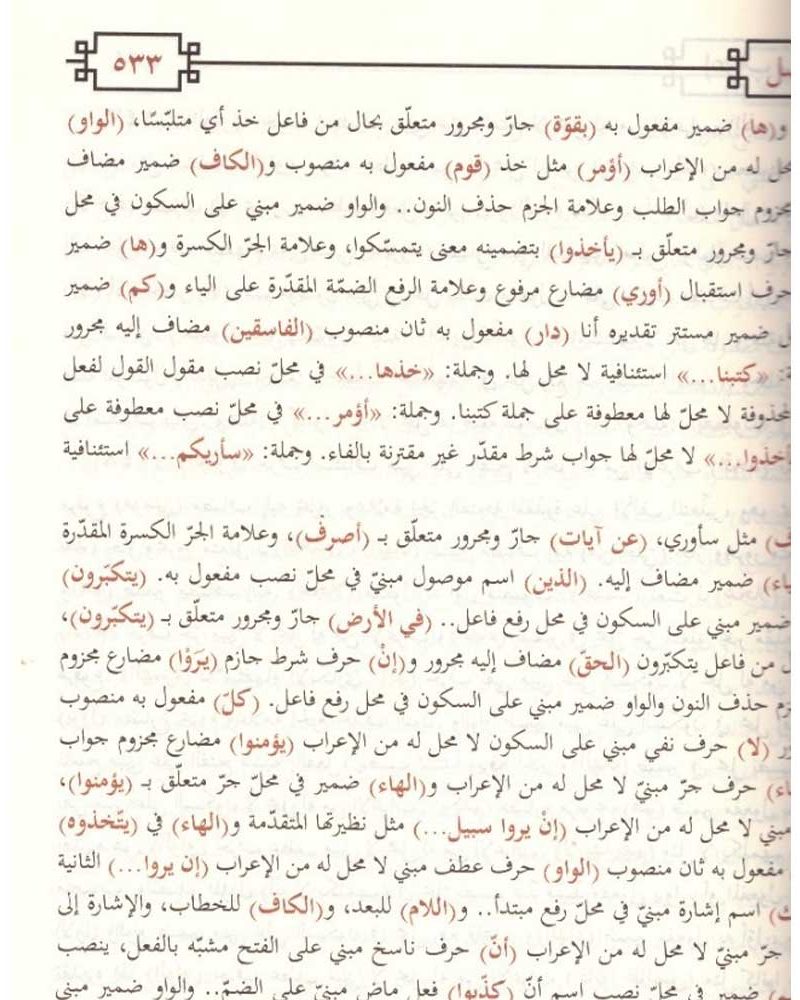 ٥٣٣
و(ها) ضمير مفعول به (بقوّة) جارّ ومجرور متعلّق بحال من فاعل خذ أي متلبّسًا، (الواو)
محل له من الإعراب (أؤمر) مثل خذ (قوم) مفعول به منصوب و(الكاف) ضمير مضاف
مجزوم جواب الطلب وعلامة الجزم حذف النون.. والواو ضمير مبني على السكون في محل
جارّ ومجرور متعلّق بـ (يأخذوا) بتضمينه معنى يتمسّكوا، وعلامة الجرّ الكسرة و(ها) ضمير
حرف استقبال (أوري) مضارع مرفوع وعلامة الرفع الضمّة المقدّرة على الياء و(كم) ضمير
ضمير مستتر تقديره أنا (دار) مفعول به ثان منصوب (الفاسقين) مضاف إليه مجرور
«كتبنا...» استئنافية لا محل لها. وجملة: «خذها...» في محلّ نصب مقول القول لفعل
لا محلّ لها معطوفة على جملة كتبنا. وجملة: «أؤمر...» في محلّ نصب معطوفة على
لا محلّ لها جواب شرط مقدّر غير مقترنة بالفاء. وجملة: «سأريكم...» استئنافية
مثل سأوري، (عن آيات) جارّ ومجرور متعلّق بـ (أصرف)، وعلامة الجرّ الكسرة المقدّرة
ضمير مضاف إليه. (الذين) اسم موصول مبنيّ في محلّ نصب مفعول به. (يتكبّرون)
ضمير مبني على السكون في محل رفع فاعل.. (في الأرض) جارّ ومجرور متعلّق بـ (يتكبّرون)،
من فاعل يتكبّرون (الحقّ) مضاف إليه مجرور و(إنْ) حرف شرط جازم (يَرَوْا) مضارع مجزوم
حذف النون والواو ضمير مبني على السكون في محل رفع فاعل. (كلّ) مفعول به منصوب
(لا) حرف نفي مبني على السكون لا محل له من الإعراب (يؤمنوا) مضارع مجزوم جواب
حرف جرّ مبنيّ لا محل له من الإعراب و(الهاء) ضمير في محلّ جرّ متعلّق بـ (يؤمنوا)،
مبني لا محل له من الإعراب (إنْ يروا سبيل...) مثل نظيرتها المتقدّمة و(الهاء) في (يتّخذوه)
مفعول به ثان منصوب (الواو) حرف عطف مبني لا محل له من الإعراب (إن يروا...) الثانية
اسم إشارة مبنيّ في محلّ رفع مبتدأ.. و(اللام) للبعد، و(الكاف) للخطاب، والإشارة إلى
جرّ مبنيّ لا محل له من الإعراب (أنّ) حرف ناسخ مبني على الفتح مشبّه بالفعل، ينصب
ضمير في محلّ نصب اسم أنّ (كذّبوا) فعل ماض مبنيّ على الضمّ.. والواو ضمير مبني